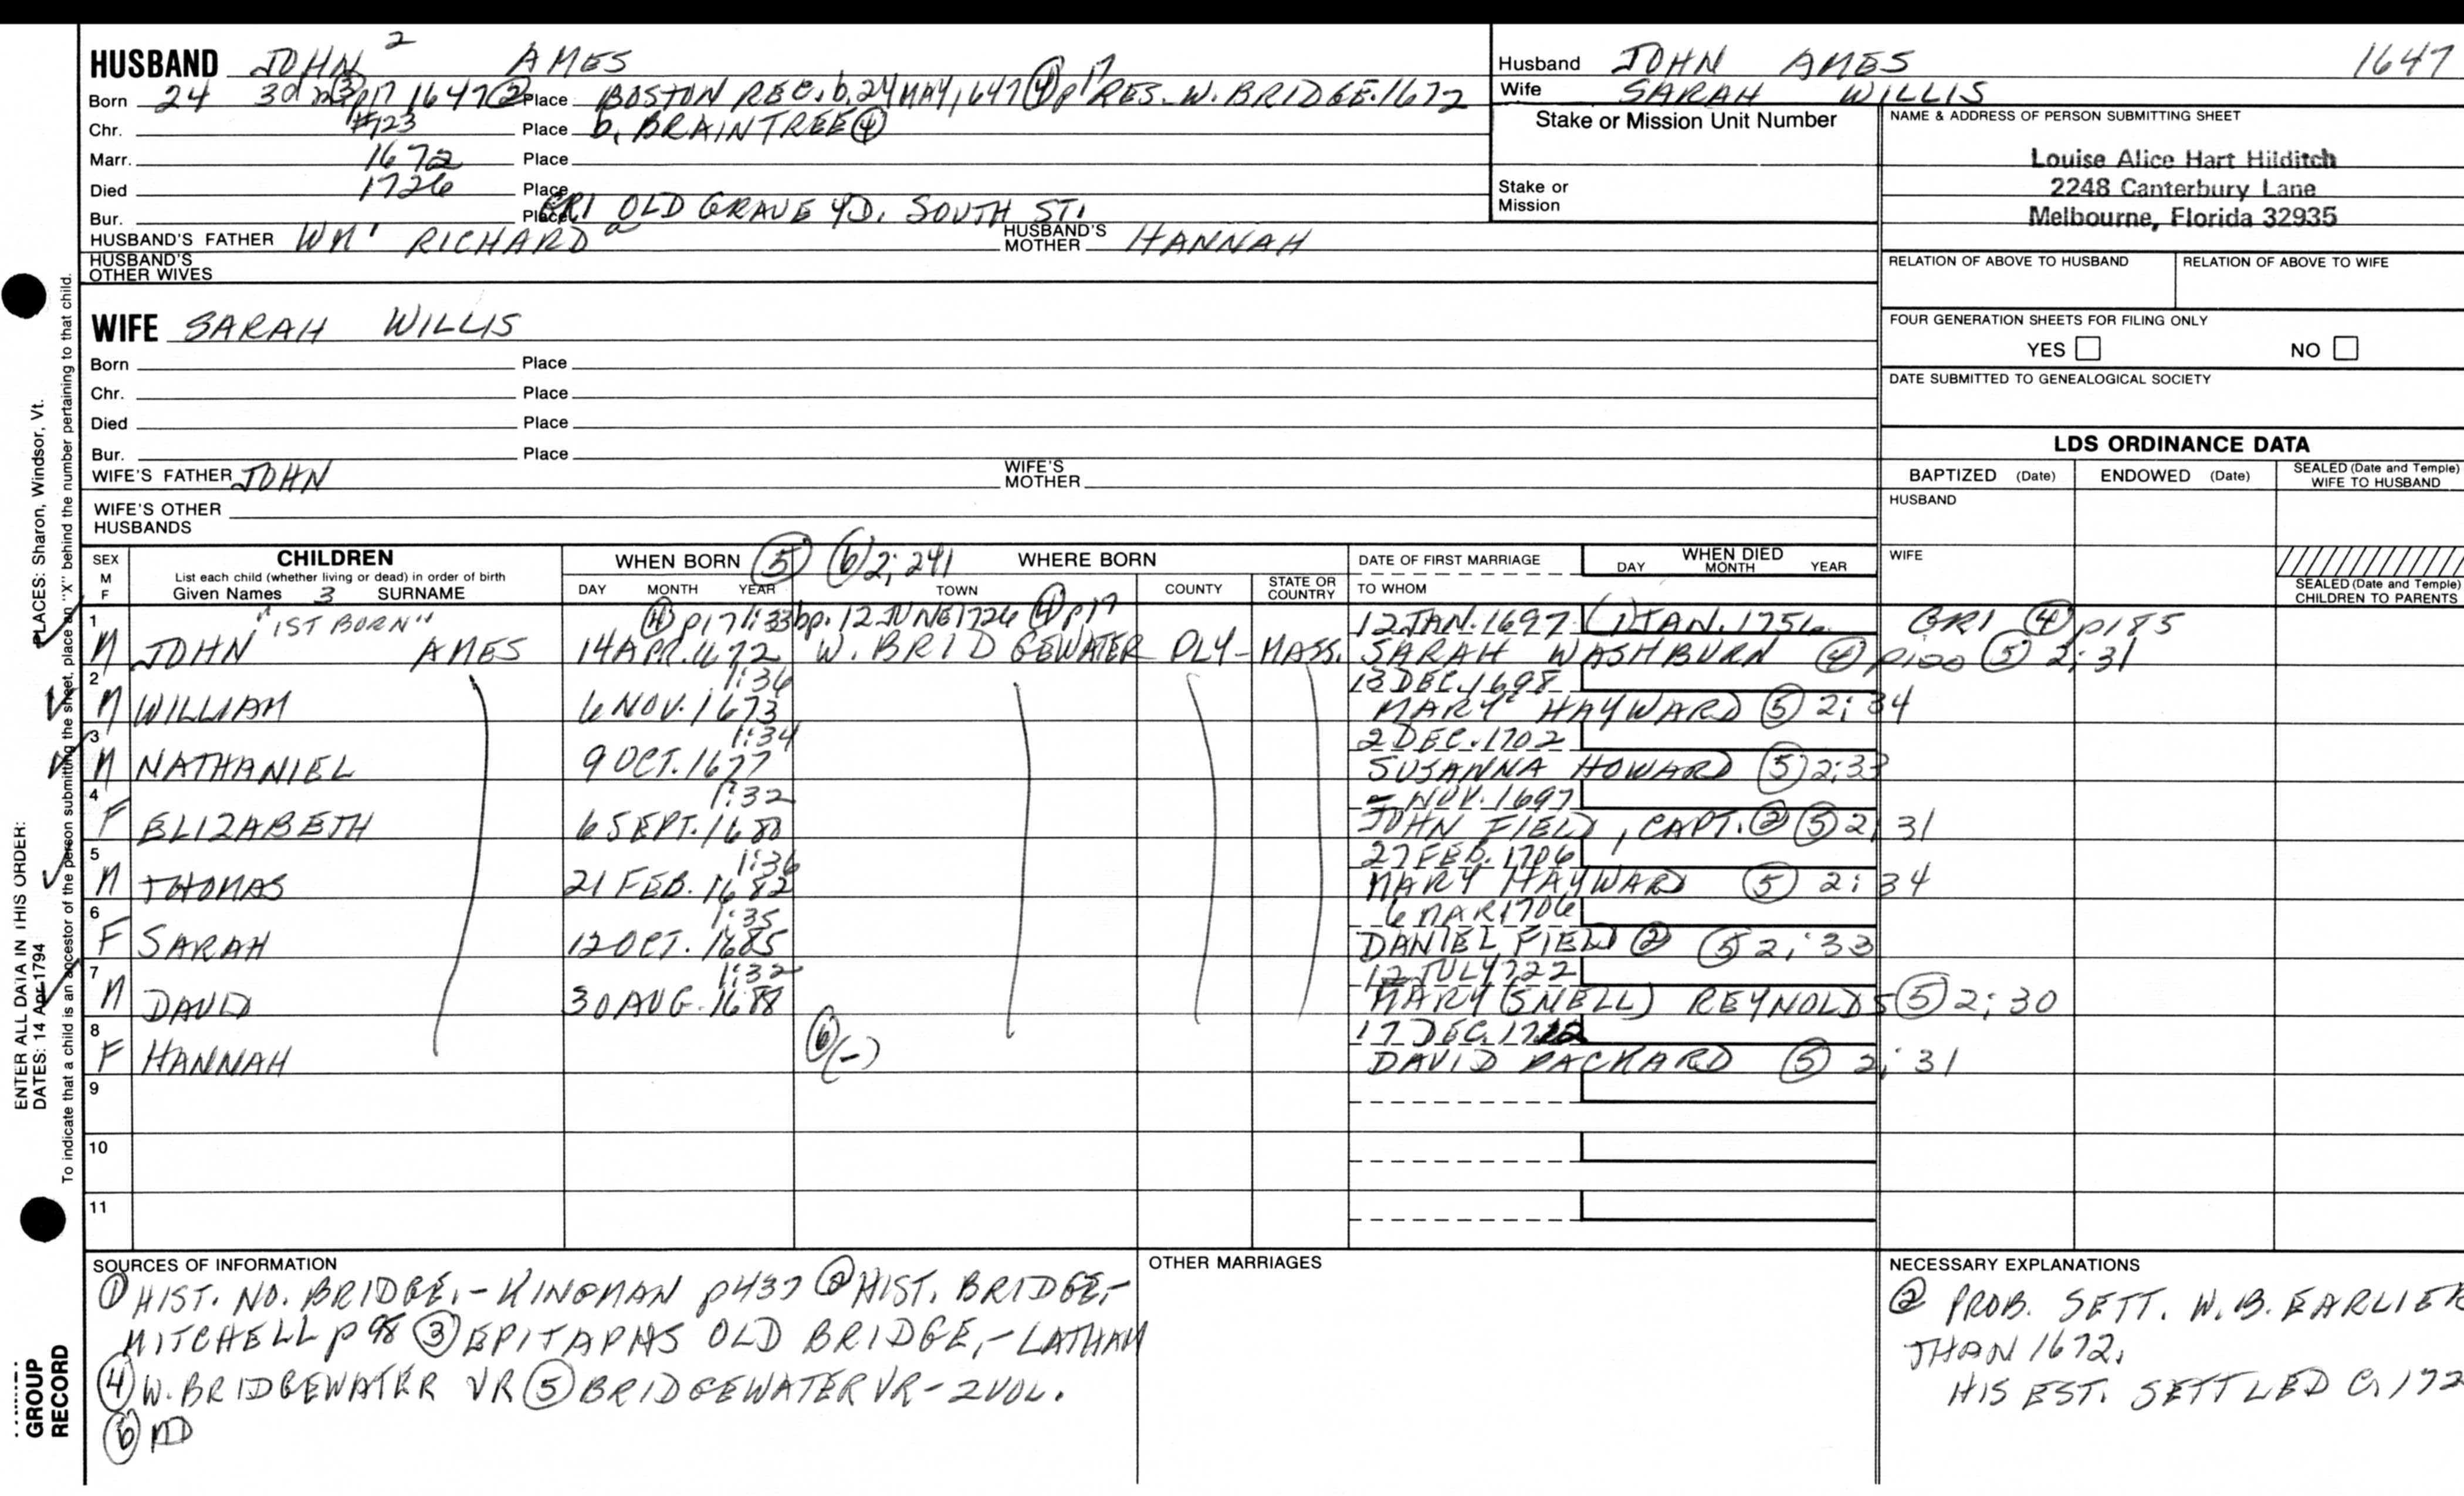 HUSBAND JOHN 2 AMES
Born 24 3d m 3 p17 1647 ② Place BOSTON REC. b. 24 MAY, 1647 ④ p17 RES. W. BRIDGE. 1672
Chr. #723 Place b. BRAINTREE ④
Marr. 1672 Place
Died 1726 Place
Bur. Place GRI OLD GRAVE YD. SOUTH ST.
HUSBAND'S FATHER WM' RICHARD HUSBAND'S MOTHER HANNAH
HUSBAND'S OTHER WIVES
Husband JOHN AMES 1647
Wife SARAH WILLIS
Stake or Mission Unit Number
Stake or Mission
NAME & ADDRESS OF PERSON SUBMITTING SHEET
Louise Alice Hart Hilditch
2248 Canterbury Lane
Melbourne, Florida 32935
RELATION OF ABOVE TO HUSBAND RELATION OF ABOVE TO WIFE
FOUR GENERATION SHEETS FOR FILING ONLY
YES NO
DATE SUBMITTED TO GENEALOGICAL SOCIETY
WIFE SARAH WILLIS
Born Place
Chr. Place
Died Place
Bur. Place
WIFE'S FATHER JOHN WIFE'S MOTHER
WIFE'S OTHER HUSBANDS
LDS ORDINANCE DATA
BAPTIZED (Date) ENDOWED (Date) SEALED (Date and Temple) WIFE TO HUSBAND
HUSBAND
WIFE
SEALED (Date and Temple) CHILDREN TO PARENTS
SEX M F CHILDREN
List each child (whether living or dead) in order of birth
Given Names 3 SURNAME
WHEN BORN ⑤ ⑥ 2:241 WHERE BORN
DAY MONTH YEAR TOWN COUNTY STATE OR COUNTRY
DATE OF FIRST MARRIAGE
TO WHOM
WHEN DIED
DAY MONTH YEAR
1 "1ST BORN" ④ p17 1:33 bp. 12 JUNE 1726 ④ p17 12 JAN. 1697 1 JAN. 1756 GRI ④ p185
M JOHN AMES 14 APR. 1672 W. BRIDGEWATER PLY- MASS. SARAH WASHBURN ④ p100 ⑤ 2:31
2 1:36 13 DEC. 1698
M WILLIAM 6 NOV. 1673 MARY HAYWARD ⑤ 2:34
3 1:34 2 DEC. 1702
M NATHANIEL 9 OCT. 1677 SUSANNA HOWARD ⑤ 2:33
4 1:32 - NOV. 1697
F ELIZABETH 6 SEPT. 1680 JOHN FIELD, CAPT. ② ⑤ 2:31
5 1:36 27 FEB. 1706
M THOMAS 21 FEB. 1682 MARY HAYWARD ⑤ 2:34
6 1:35 6 MAR 1706
F SARAH 12 OCT. 1685 DANIEL FIELD ② ⑤ 2:33
7 1:32 12 JULY 1722
M DAVID 30 AUG. 1688 MARY (SNELL) REYNOLDS ⑤ 2:30
8 17 DEC. 1712
F HANNAH ⑥ (-) DAVID PACKARD ⑤ 2:31
9
10
11
SOURCES OF INFORMATION
① HIST. NO. BRIDGE.- KINGMAN p437 ② HIST. BRIDGE,-
MITCHELL p 98 ③ EPITAPHS OLD BRIDGE,- LATHAM
④ W. BRIDGEWATER VR ⑤ BRIDGEWATER VR - 2 VOL.
⑥ MD
OTHER MARRIAGES
NECESSARY EXPLANATIONS
② PROB. SETT. W. B. EARLIER
THAN 1672.
HIS EST. SETTLED C. 172
PLACES: Sharon, Windsor, Vt.
ENTER ALL DATA IN THIS ORDER:
DATES: 14 Apr 1794
To indicate that a child is an ancestor of the person submitting the sheet, place an "X" behind the number pertaining to that child.
GROUP
RECORD